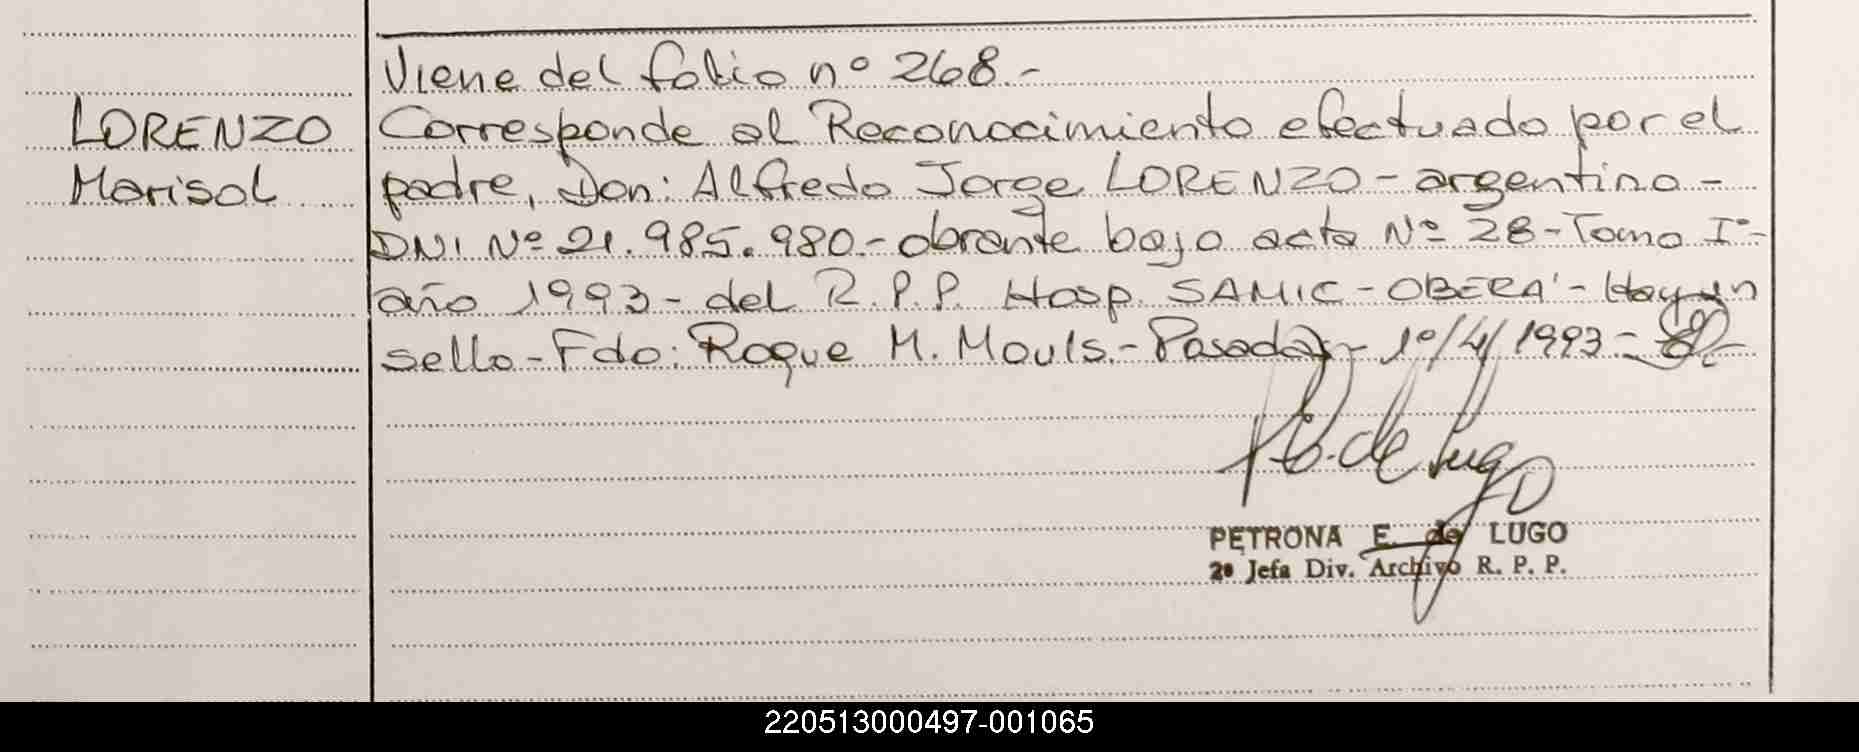 Viene del folio nº 268.-
LORENZO
Marisol
Corresponde al Reconocimiento efectuado por el
padre, Don: Alfredo Jorge LORENZO - argentino -
DNI Nº 21.985.980.- obrante bajo acta Nº 28 - Tomo Iº-
año 1993 - del R.P.P. Hosp. SAMIC - OBERÁ - Hay un
sello - Fdo: Roque M. Mouls.- Posadas - 1º/4/1993 -
de Lugo
PETRONA E. de LUGO
2ª Jefa Div. Archivo R. P. P.
220513000497-001065